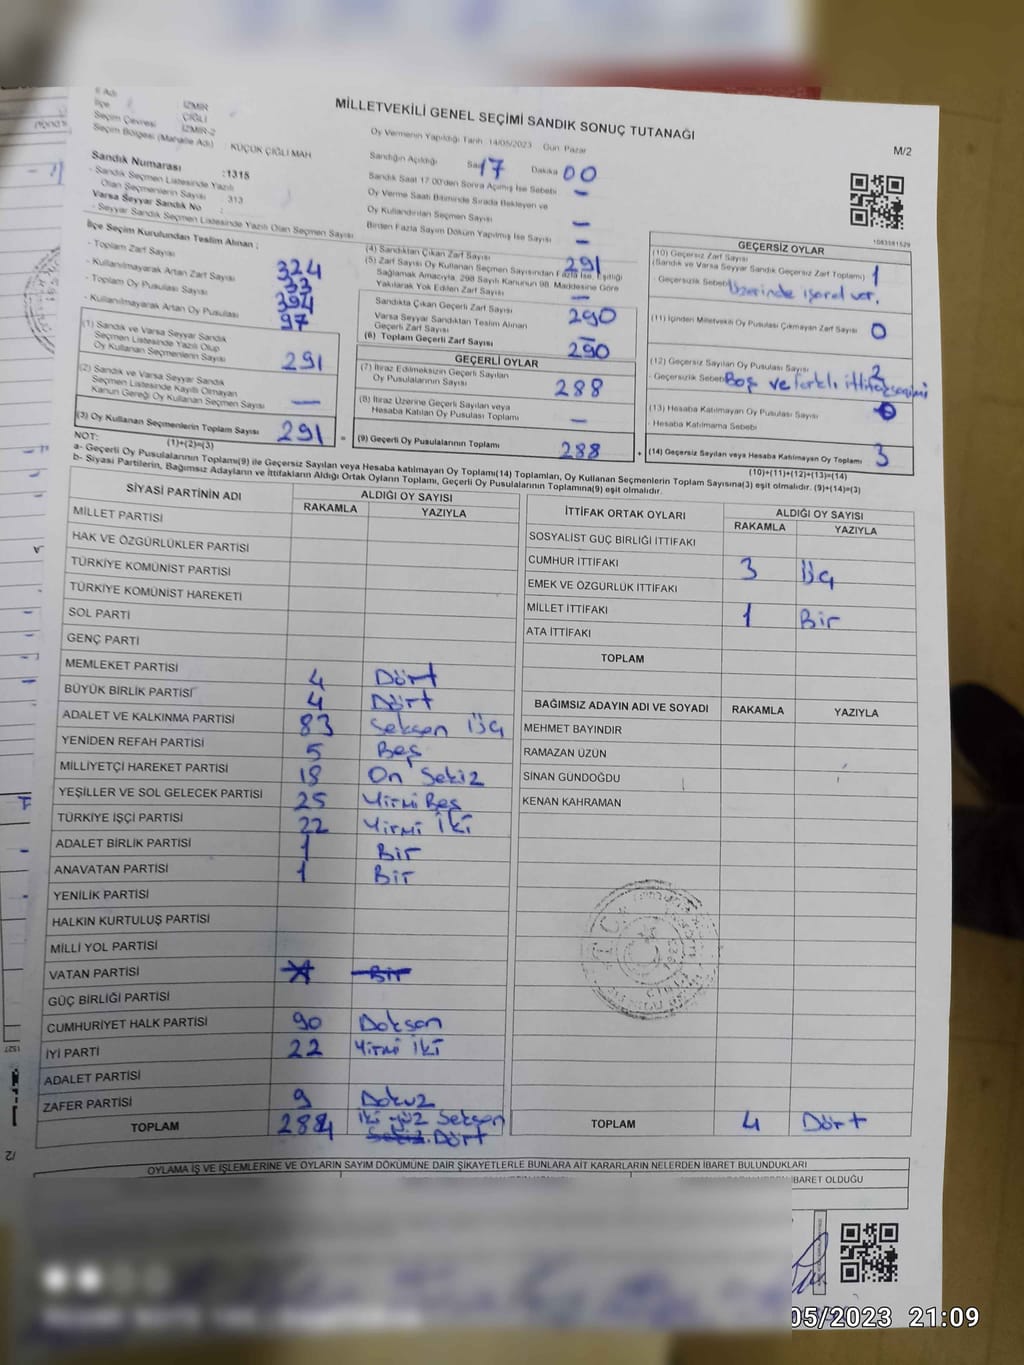 MİLLETVEKİLİ GENEL SEÇİMİ SANDIK SONUÇ TUTANAĞI
M/2
İl Adı İZMİR
İlçe ÇİĞLİ
Seçim Çevresi İZMİR-2
Seçim Bölgesi (Mahalle Adı) : KÜÇÜK ÇİĞLİ MAH
Sandık Numarası :1315
- Sandık Seçmen Listesinde Yazılı
Olan Seçmenlerin Sayısı 313
Varsa Seyyar Sandık No :
- Seyyar Sandık Seçmen Listesinde Yazılı Olan Seçmen Sayısı
Oy Vermenin Yapıldığı Tarih: 14/05/2023 Gün: Pazar
Sandığın Açıldığı Saat 17 Dakika 00
Sandık Saat 17.00'den Sonra Açılmış İse Sebebi –
Oy Verme Saati Bitiminde Sırada Bekleyen ve
Oy Kullandırılan Seçmen Sayısı –
Birden Fazla Sayım Döküm Yapılmış İse Sayısı –
İlçe Seçim Kurulundan Teslim Alınan ;
- Toplam Zarf Sayısı 324
- Kullanılmayarak Artan Zarf Sayısı 33
- Toplam Oy Pusulası Sayısı 394
- Kullanılmayarak Artan Oy Pusulası 97
(1) Sandık ve Varsa Seyyar Sandık
Seçmen Listesinde Yazılı Olup
Oy Kullanan Seçmenlerin Sayısı 291
(2) Sandık ve Varsa Seyyar Sandık
Seçmen Listesinde Kayıtlı Olmayan
Kanun Gereği Oy Kullanan Seçmen Sayısı —
(3) Oy Kullanan Seçmenlerin Toplam Sayısı 291
(1)+(2)=(3)
(4) Sandıktan Çıkan Zarf Sayısı 291
(5) Zarf Sayısı Oy Kullanan Seçmen Sayısından Fazla İse, Eşitliği
Sağlamak Amacıyla, 298 Sayılı Kanunun 98. Maddesine Göre
Yakılarak Yok Edilen Zarf Sayısı –
Sandıkta Çıkan Geçerli Zarf Sayısı 290
Varsa Seyyar Sandıktan Teslim Alınan
Geçerli Zarf Sayısı –
(6) Toplam Geçerli Zarf Sayısı 290
GEÇERLİ OYLAR
(7) İtiraz Edilmeksizin Geçerli Sayılan
Oy Pusulalarının Sayısı 288
(8) İtiraz Üzerine Geçerli Sayılan veya
Hesaba Katılan Oy Pusulası Toplamı –
= (9) Geçerli Oy Pusulalarının Toplamı 288
1083581529
GEÇERSİZ OYLAR
(10) Geçersiz Zarf Sayısı
(Sandık ve Varsa Seyyar Sandık Geçersiz Zarf Toplamı) 1
- Geçersizlik Sebebi Üzerinde işaret var.
(11) İçinden Milletvekili Oy Pusulası Çıkmayan Zarf Sayısı 0
(12) Geçersiz Sayılan Oy Pusulası Sayısı 2
- Geçersizlik Sebebi Boş ve farklı ittifak
(13) Hesaba Katılmayan Oy Pusulası Sayısı 0
- Hesaba Katılmama Sebebi
+ (14) Geçersiz Sayılan veya Hesaba Katılmayan Oy Toplamı 3
(10)+(11)+(12)+(13)=(14)
NOT:
a- Geçerli Oy Pusulaların Toplamı(9) ile Geçersiz Sayılan veya Hesaba katılmayan Oy Toplamı(14) Toplamları, Oy Kullanan Seçmenlerin Toplam Sayısına(3) eşit olmalıdır. (9)+(14)=(3)
b- Siyasi Partilerin, Bağımsız Adayların ve İttifakların Aldığı Ortak Oyların Toplamı, Geçerli Oy Pusulalarının Toplamına(9) eşit olmalıdır.
SİYASİ PARTİNİN ADI ALDIĞI OY SAYISI
RAKAMLA YAZIYLA
MİLLET PARTİSİ
HAK VE ÖZGÜRLÜKLER PARTİSİ
TÜRKİYE KOMÜNİST PARTİSİ
TÜRKİYE KOMÜNİST HAREKETİ
SOL PARTİ
GENÇ PARTİ
MEMLEKET PARTİSİ 4 Dört
BÜYÜK BİRLİK PARTİSİ 4 Dört
ADALET VE KALKINMA PARTİSİ 83 Seksen Üç
YENİDEN REFAH PARTİSİ 5 Beş
MİLLİYETÇİ HAREKET PARTİSİ 18 On Sekiz
YEŞİLLER VE SOL GELECEK PARTİSİ 25 Yirmi Beş
TÜRKİYE İŞÇİ PARTİSİ 22 Yirmi İki
ADALET BİRLİK PARTİSİ 1 Bir
ANAVATAN PARTİSİ 1 Bir
YENİLİK PARTİSİ
HALKIN KURTULUŞ PARTİSİ
MİLLİ YOL PARTİSİ
VATAN PARTİSİ Bir
GÜÇ BİRLİĞİ PARTİSİ
CUMHURİYET HALK PARTİSİ 90 Doksan
İYİ PARTİ 22 Yirmi İki
ADALET PARTİSİ
ZAFER PARTİSİ 9 Dokuz
TOPLAM 284 İki yüz Seksen
Sekiz. Dört
İTTİFAK ORTAK OYLARI ALDIĞI OY SAYISI
RAKAMLA YAZIYLA
SOSYALİST GÜÇ BİRLİĞİ İTTİFAKI
CUMHUR İTTİFAKI 3 Üç
EMEK VE ÖZGÜRLÜK İTTİFAKI
MİLLET İTTİFAKI 1 Bir
ATA İTTİFAKI
TOPLAM
BAĞIMSIZ ADAYIN ADI VE SOYADI RAKAMLA YAZIYLA
MEHMET BAYINDIR
RAMAZAN ÜZÜN
SİNAN GÜNDOĞDU
KENAN KAHRAMAN
TOPLAM 4 Dört
OYLAMA İŞ VE İŞLEMLERİNE VE OYLARIN SAYIM DÖKÜMÜNE DAİR ŞİKAYETLERLE BUNLARA AİT KARARLARIN NELERDEN İBARET BULUNDUKLARI
İBARET OLDUĞU
05/2023 21:09